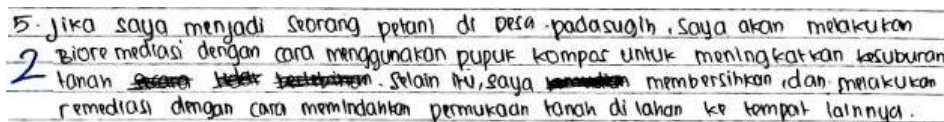 5. Jika saya menjadi seorang petani di Desa padasugih, saya akan melakukan
2 Bioremediasi dengan cara menggunakan pupuk kompas untuk meningkatkan kesuburan
tanah. Selain itu, saya membersihkan dan melakukan
remediasi dengan cara memindahkan permukaan tanah di lahan ke tempat lainnya.